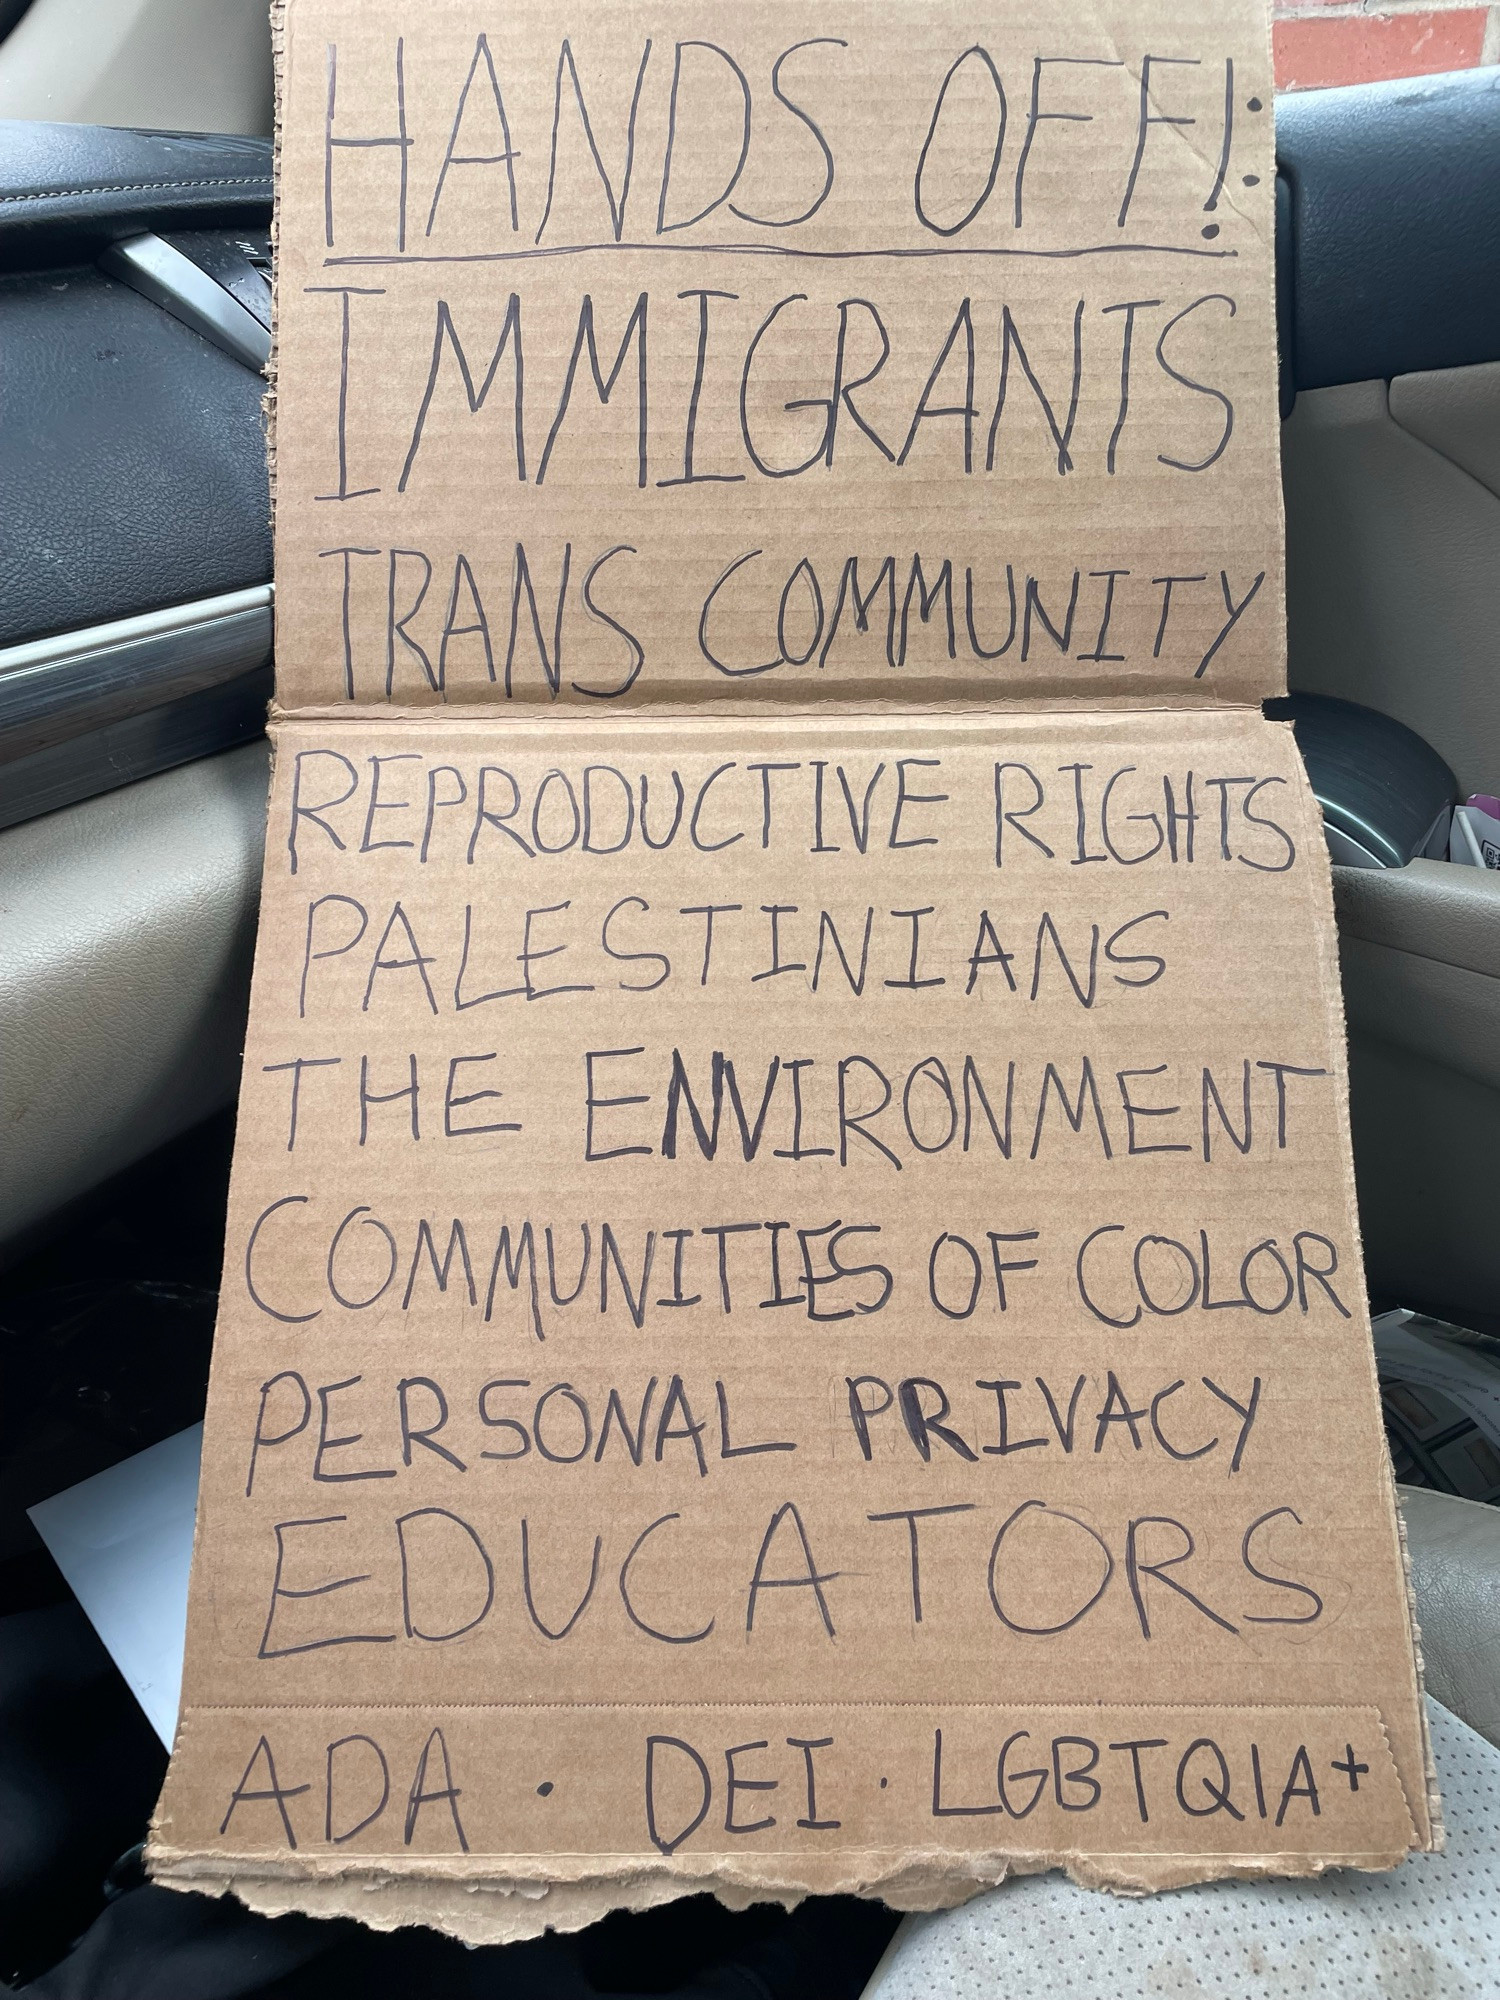 HANDS OFF!:
IMMIGRANTS
TRANS COMMUNITY
REPRODUCTIVE RIGHTS
PALESTINIANS
THE ENVIRONMENT
COMMUNITIES OF COLOR
PERSONAL PRIVACY
EDUCATORS
ADA · DEI · LGBTQIA+